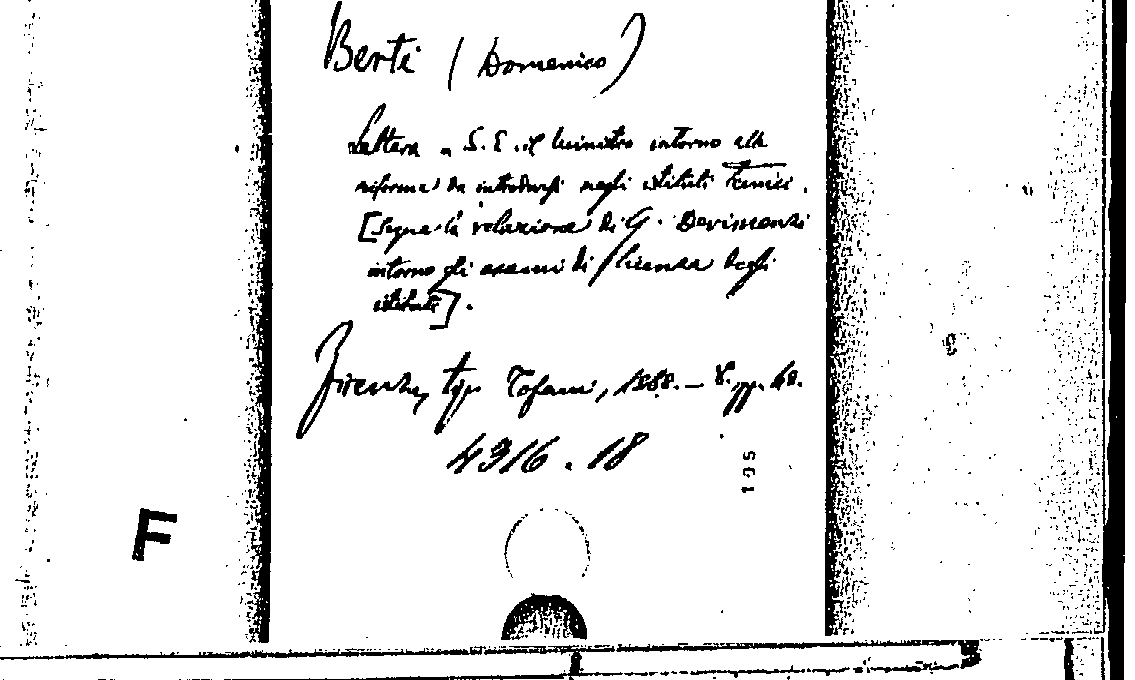 Berti (Domenico)
Lettera a S. E. il Ministro intorno alle
riforme da introdursi negli istituti Tecnici.
[Segue la relazione di G. Devincenzi
intorno gli esami di licenza degli
istituti].
Firenze, typ Tofani, 1868. – 8. pp. 48.
4316.18
195
F